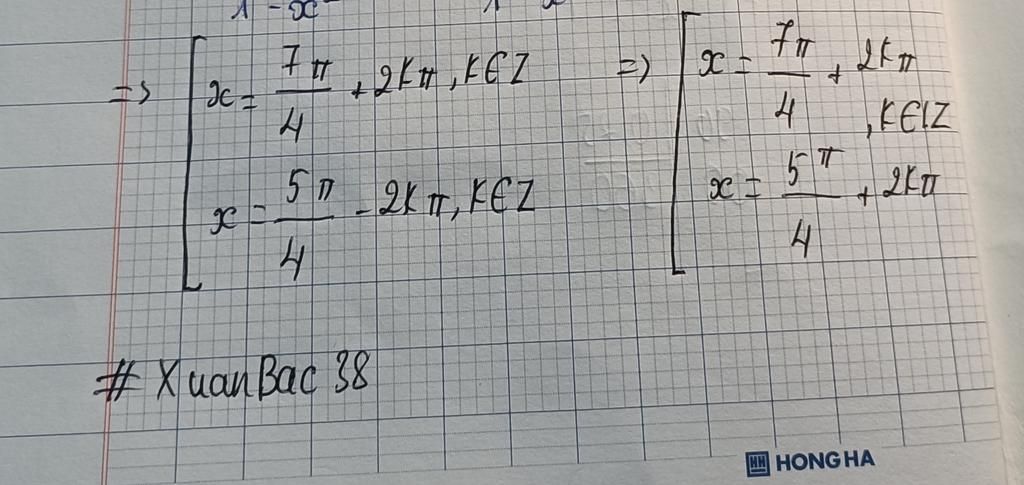 => x = 7π/4 + 2Kπ, K∈Z => x = 7π/4 + 2Kπ
, K∈Z
x = 5π/4 - 2Kπ, K∈Z x = 5π/4 + 2Kπ
# XuanBac 38
HH HONG HA